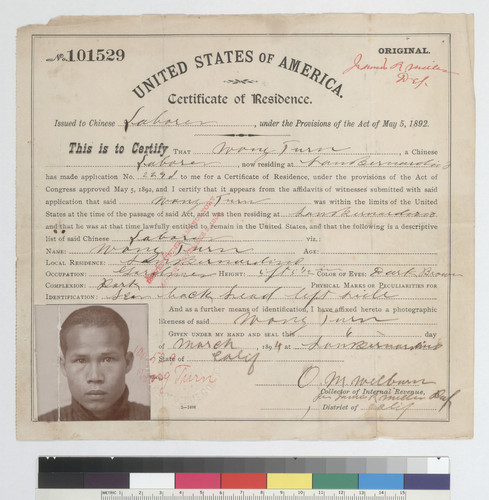 No. 101529
ORIGINAL.
UNITED STATES OF AMERICA.
Certificate of Residence.
Issued to Chinese Laborer, under the Provisions of the Act of May 5, 1892.
This is to Certify THAT Wong Turn, a Chinese
Laborer, now residing at San Bernardino
has made application No. to me for a Certificate of Residence, under the provisions of the Act of
Congress approved May 5, 1892, and I certify that it appears from the affidavits of witnesses submitted with said
application that said Wong Turn was within the limits of the United
States at the time of the passage of said Act, and was then residing at San Bernardino
and that he was at that time lawfully entitled to remain in the United States, and that the following is a descriptive
list of said Chinese Laborer viz.:
NAME: Wong Turn AGE:
LOCAL RESIDENCE: San Bernardino
OCCUPATION: HEIGHT: COLOR OF EYES: Dark Brown
COMPLEXION: Dark PHYSICAL MARKS OR PECULIARITIES FOR
IDENTIFICATION: Scar back head left side
And as a further means of identification, I have affixed hereto a photographic
likeness of said Wong Turn
GIVEN UNDER MY HAND AND SEAL this 6 day
of March, 1894, at San Bernardino
State of Calif
O. M. Welburn
Collector of Internal Revenue,
per James R Miller Dep
District of Calif
Turn